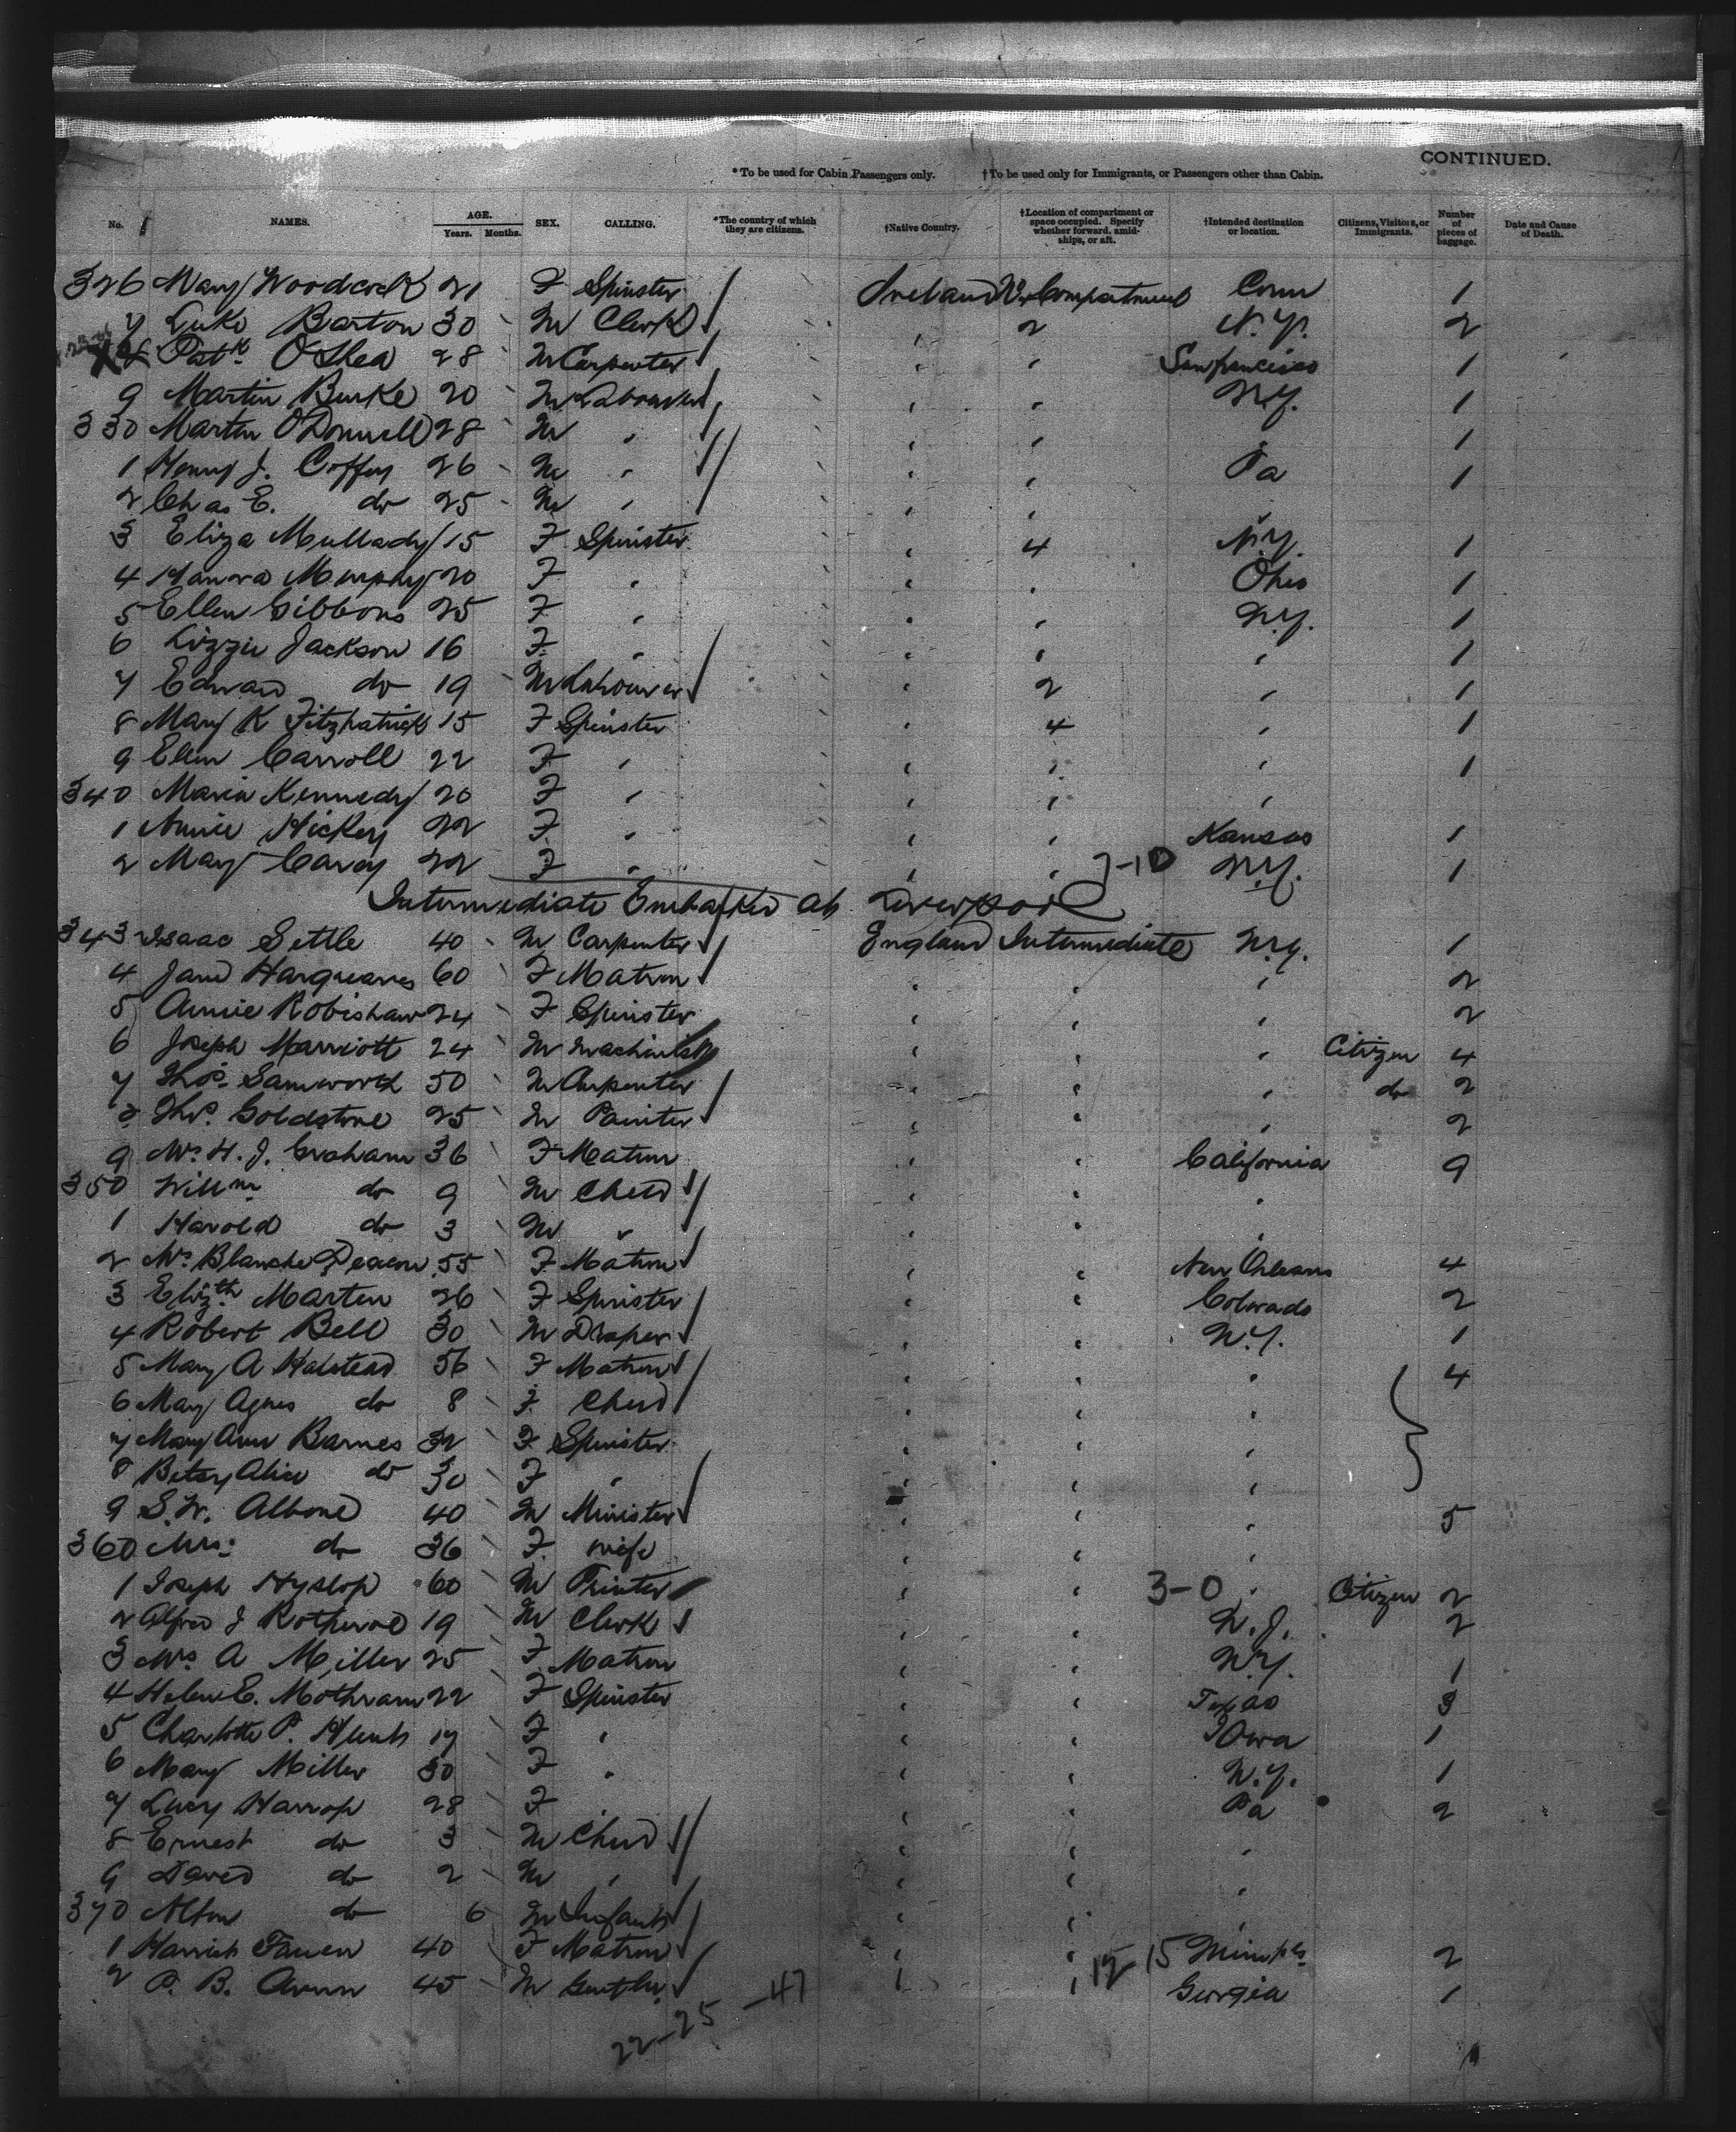 CONTINUED.
*To be used for Cabin Passengers only. †To be used only for Immigrants, or Passengers other than Cabin.
No. NAMES. AGE. Years. Months. SEX. CALLING. *The country of which they are citizens. †Native Country. †Location of compartment or space occupied. Specify whether forward, amidships, or aft. †Intended destination or location. Citizens, Visitors, or Immigrants. Number of pieces of baggage. Date and Cause of Death.
326 Mary Woodcock 21 F Spinster Ireland Compartment Conn 1
7 Luke Barton 30 M Clerk 2 N.Y. 2
8 Patk O'Shea 28 M Carpenter Sanfrancisco 1
9 Martin Burke 20 M Labourer N.Y. 1
330 Martin O'Donnell 28 M 1
1 Henry J. Coffey 26 M Pa 1
2 Chas E. do 25 M
3 Eliza Mullady 15 F Spinster 4 N.Y. 1
4 Hanora Murphy 20 F Ohio 1
5 Ellen Gibbons 25 F N.Y. 1
6 Lizzie Jackson 16 F 1
7 Edward do 19 M Labourer 2 1
8 Mary K Fitzpatrick 15 F Spinster 4 1
9 Ellen Carroll 22 F 1
340 Maria Kennedy 20 F
1 Annie Hickey 22 F Kansas 1
2 Mary Carey 22 F 7-10 N.Y. 1
Intermediate Embarked at Liverpool
343 Isaac Settle 40 M Carpenter England Intermediate N.Y. 1
4 Jane Hargreaves 60 F Matron 2
5 Annie Robishaw 24 F Spinster 2
6 Joseph Marriott 24 M Machinist Citizen 4
7 Thos. Samworth 50 M Carpenter do 2
8 Thos. Goldstone 25 M Painter 2
9 Mrs H. J. Graham 36 F Matron California 9
350 Willm do 9 M Child
1 Harold do 3 M
2 Mrs Blanche Deacon 55 F Matron New Orleans 4
3 Elizth Marten 26 F Spinster Colorado 2
4 Robert Bell 30 M Draper N.Y. 1
5 Mary A Halstead 56 F Matron 4
6 Mary Agnes do 8 F Child
7 Mary Ann Barnes 32 F Spinster
8 Betsy Alice do 30 F
9 S.W. Albone 40 M Minister 5
360 Mrs. do 36 F wife
1 Joseph Hyslop 60 M Printer 3-0 Citizen 2
2 Alfred J 19 M Clerk N.J. 2
3 Mrs A Miller 25 F Matron N.Y. 1
4 Helen E. Mothram 22 F Spinster Texas 3
5 Charlotte P. 17 F Iowa 1
6 Mary Miller 30 F N.Y. 1
7 Lucy Harrop 28 F Pa 2
8 Ernest do 3 M Child
9 David do 2 M
370 do 6 M Infant
1 40 F Matron 12-15 2
2 P. B. 45 M Georgia 1
22-25-47